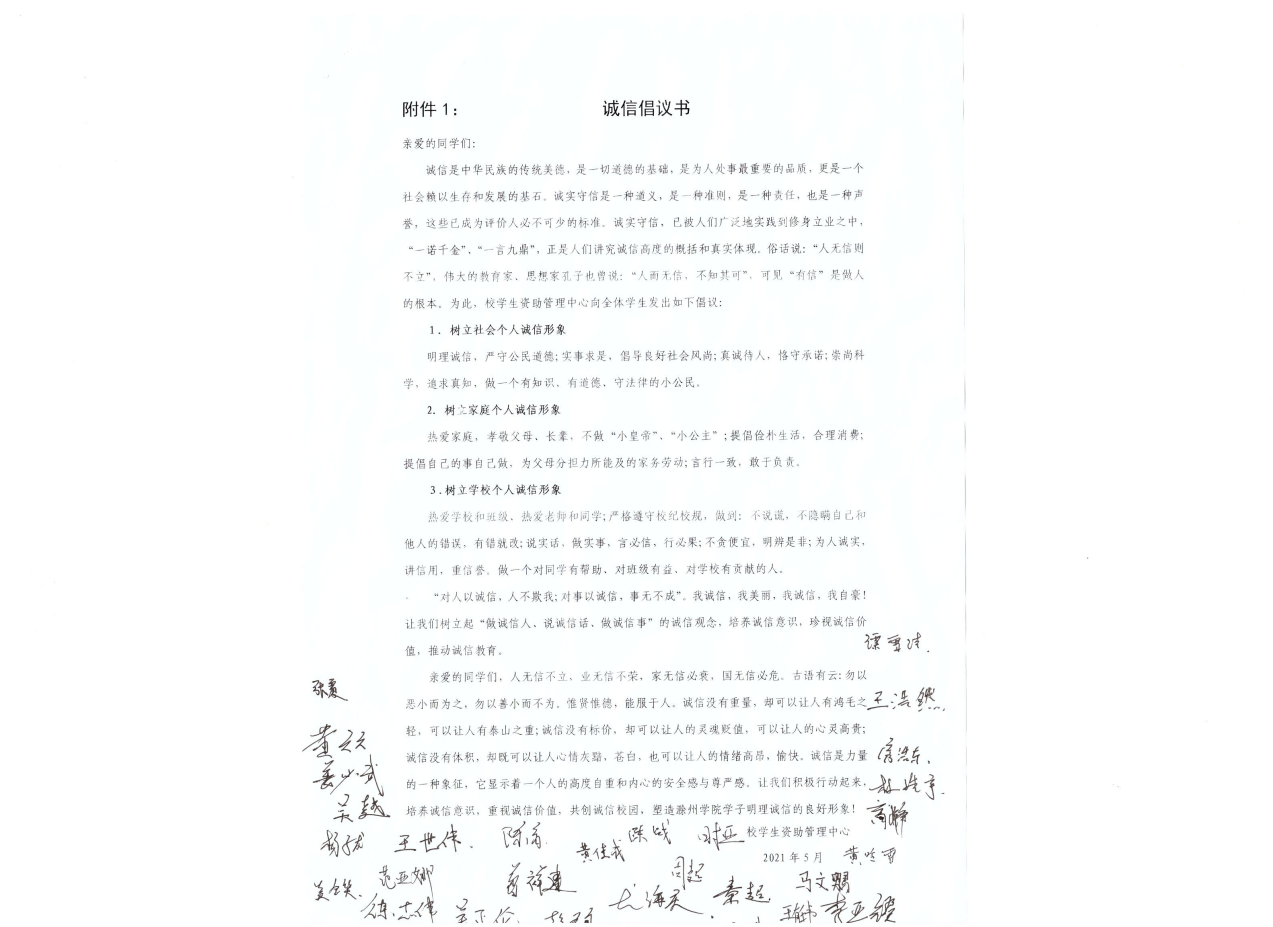 附件 1： 诚信倡议书
亲爱的同学们：
诚信是中华民族的传统美德，是一切道德的基础，是为人处事最重要的品质，更是一个
社会赖以生存和发展的基石。诚实守信是一种道义，是一种准则，是一种责任，也是一种声
誉，这些已成为评价人必不可少的标准。诚实守信，已被人们广泛地实践到修身立业之中，
“一诺千金”、“一言九鼎”，正是人们讲究诚信高度的概括和真实体现。俗话说：“人无信则
不立”。伟大的教育家、思想家孔子也曾说：“人而无信，不知其可”。可见“有信”是做人
的根本。为此，校学生资助管理中心向全体学生发出如下倡议：
1．树立社会个人诚信形象
明理诚信，严守公民道德；实事求是，倡导良好社会风尚；真诚待人，恪守承诺；崇尚科
学，追求真知，做一个有知识、有道德、守法律的小公民。
2．树立家庭个人诚信形象
热爱家庭，孝敬父母、长辈，不做“小皇帝”、“小公主”；提倡俭朴生活，合理消费；
提倡自己的事自己做，为父母分担力所能及的家务劳动；言行一致，敢于负责。
3．树立学校个人诚信形象
热爱学校和班级、热爱老师和同学；严格遵守校纪校规，做到：不说谎，不隐瞒自己和
他人的错误，有错就改；说实话，做实事，言必信，行必果；不贪便宜，明辨是非；为人诚实，
讲信用，重信誉。做一个对同学有帮助、对班级有益、对学校有贡献的人。
“对人以诚信，人不欺我；对事以诚信，事无不成”。我诚信，我美丽，我诚信，我自豪！
让我们树立起“做诚信人、说诚信话、做诚信事”的诚信观念，培养诚信意识，珍视诚信价
值，推动诚信教育。
亲爱的同学们，人无信不立，业无信不荣，家无信必衰，国无信必危。古语有云：勿以
恶小而为之，勿以善小而不为。惟贤惟德，能服于人。诚信没有重量，却可以让人有鸿毛之
轻，可以让人有泰山之重；诚信没有标价，却可以让人的灵魂贬值，可以让人的心灵高贵；
诚信没有体积，却既可以让人心情灰黯，苍白，也可以让人的情绪高昂，愉快。诚信是力量
的一种象征，它显示着一个人的高度自重和内心的安全感与尊严感。让我们积极行动起来，
培养诚信意识，重视诚信价值，共创诚信校园，塑造滁州学院学子明理诚信的良好形象！
校学生资助管理中心
2021 年 5 月
王浩然
吴越
王世伟
黄佳成
范亚娜
周起
马文鹏
秦起